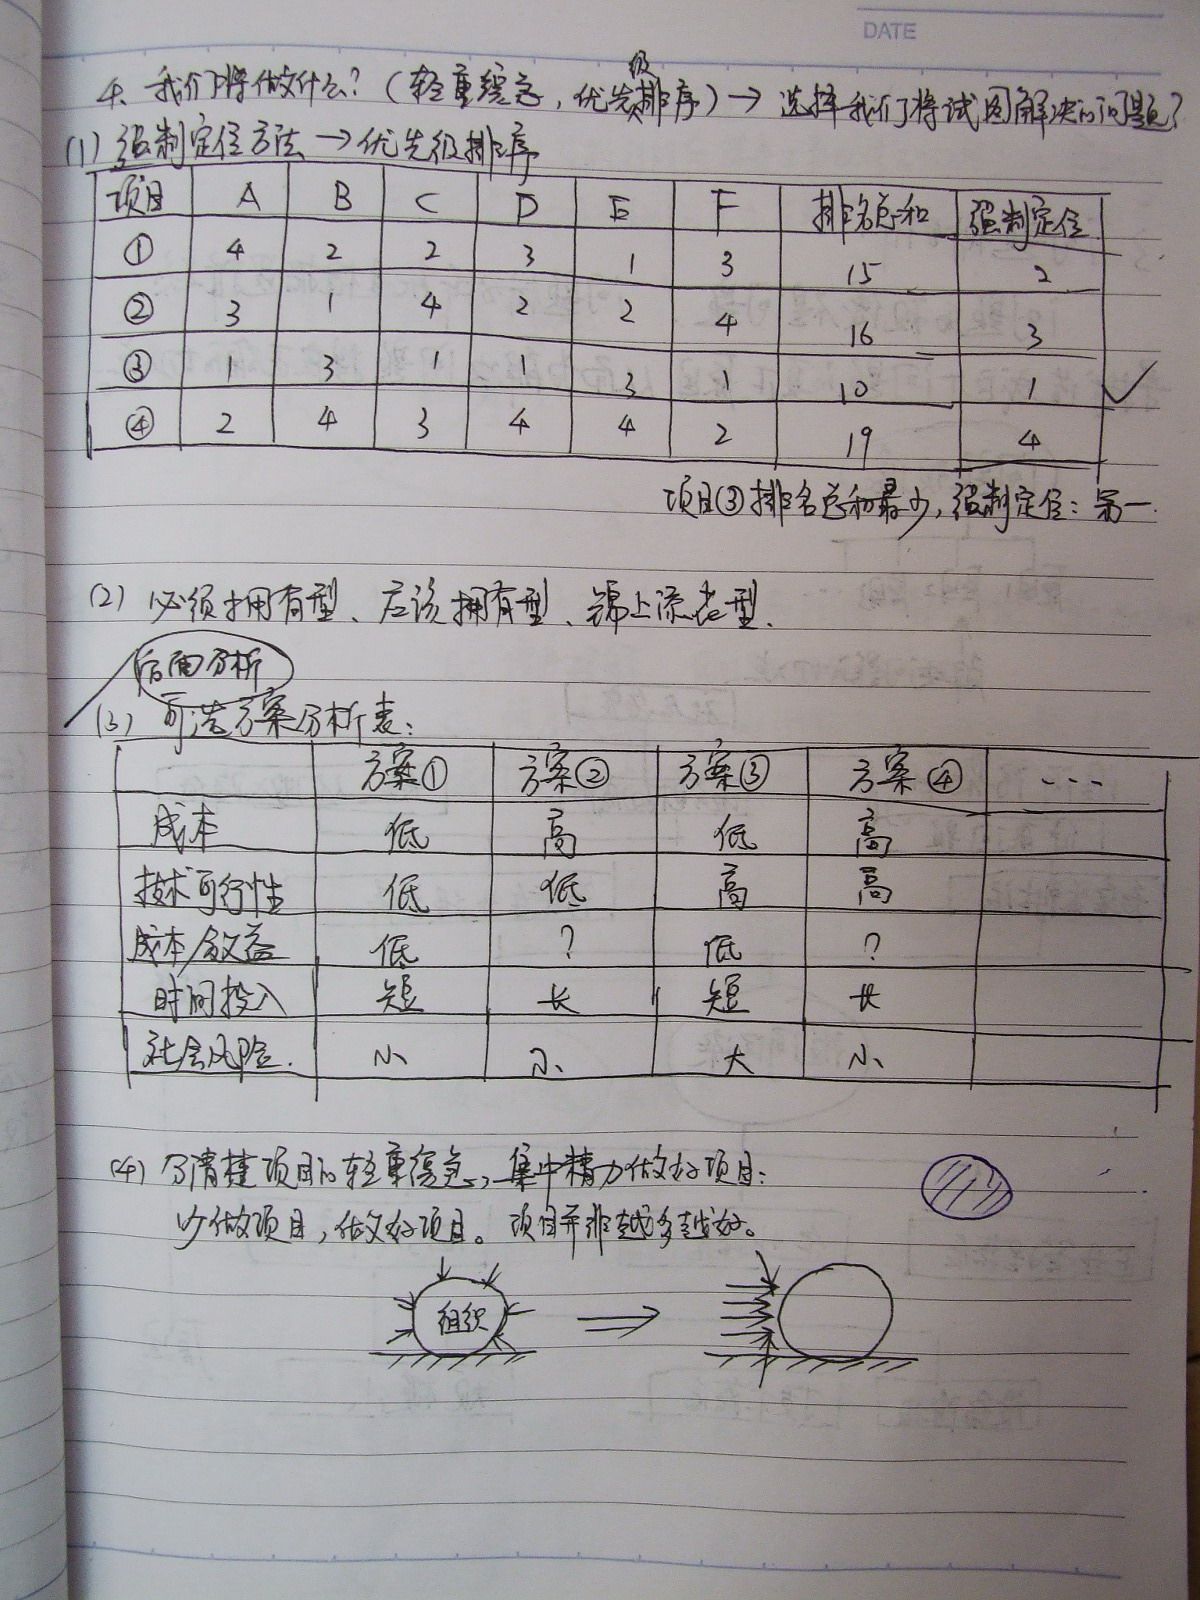 DATE
4. 我们将做什么?(轻重缓急,优先级排序)→选择我们将试图解决的问题?
(1) 强制定位方法 → 优先级排序
项目 A B C D E F 排名总和 强制定位
① 4 2 2 3 1 3 15 2
② 3 1 4 2 2 4 16 3
③ 1 3 1 1 3 1 10 1 ✓
④ 2 4 3 4 4 2 19 4
项目③排名总和最少,强制定位:第一.
(2) 必须拥有型、应该拥有型、锦上添花型.
后面分析
(3) 可选方案分析表:
方案① 方案② 方案③ 方案④ ...
成本 低 高 低 高
技术可行性 低 低 高 高
成本/效益 低 ? 低 ?
时间投入 短 长 短 长
社会风险. 小 小 大 小
(4) 分清楚项目的轻重缓急,集中精力做好项目:
少做项目,做好项目。项目并非越多越好。
组织